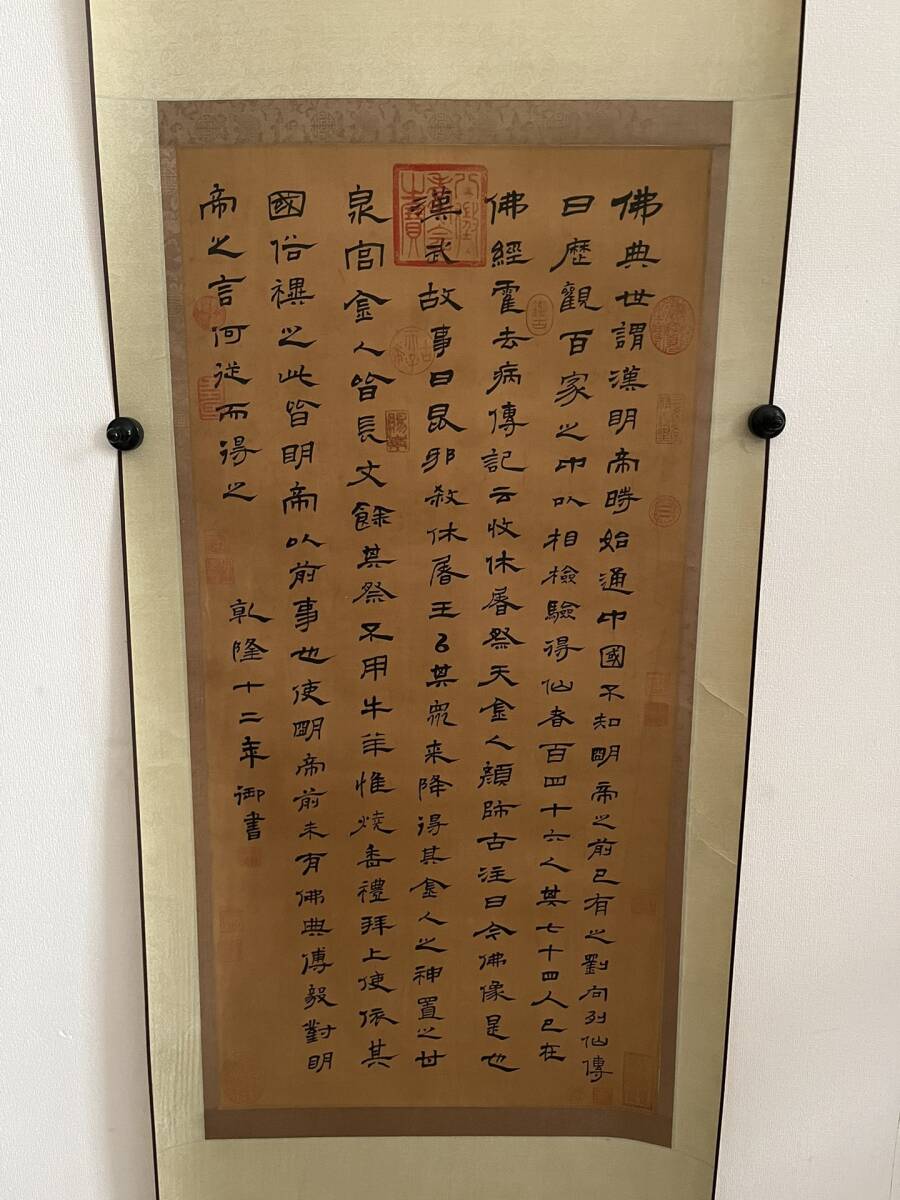 佛典世謂漢明帝時始通中國不知明帝之前已有之劉向列仙傳
曰歷觀百家之中以相檢驗得仙者百四十六人其七十四人已在
佛經霍去病傳記云收休屠祭天金人顏師古注曰今佛像是也
漢武故事曰昆邪殺休屠王以其眾來降得其金人之神置之甘
泉宮金人皆長丈餘其祭不用牛羊惟燒香禮拜上使依其
國俗禩之此皆明帝以前事也使明帝前未有佛典傅毅對明
帝之言何從而得之
乾隆十二年御書